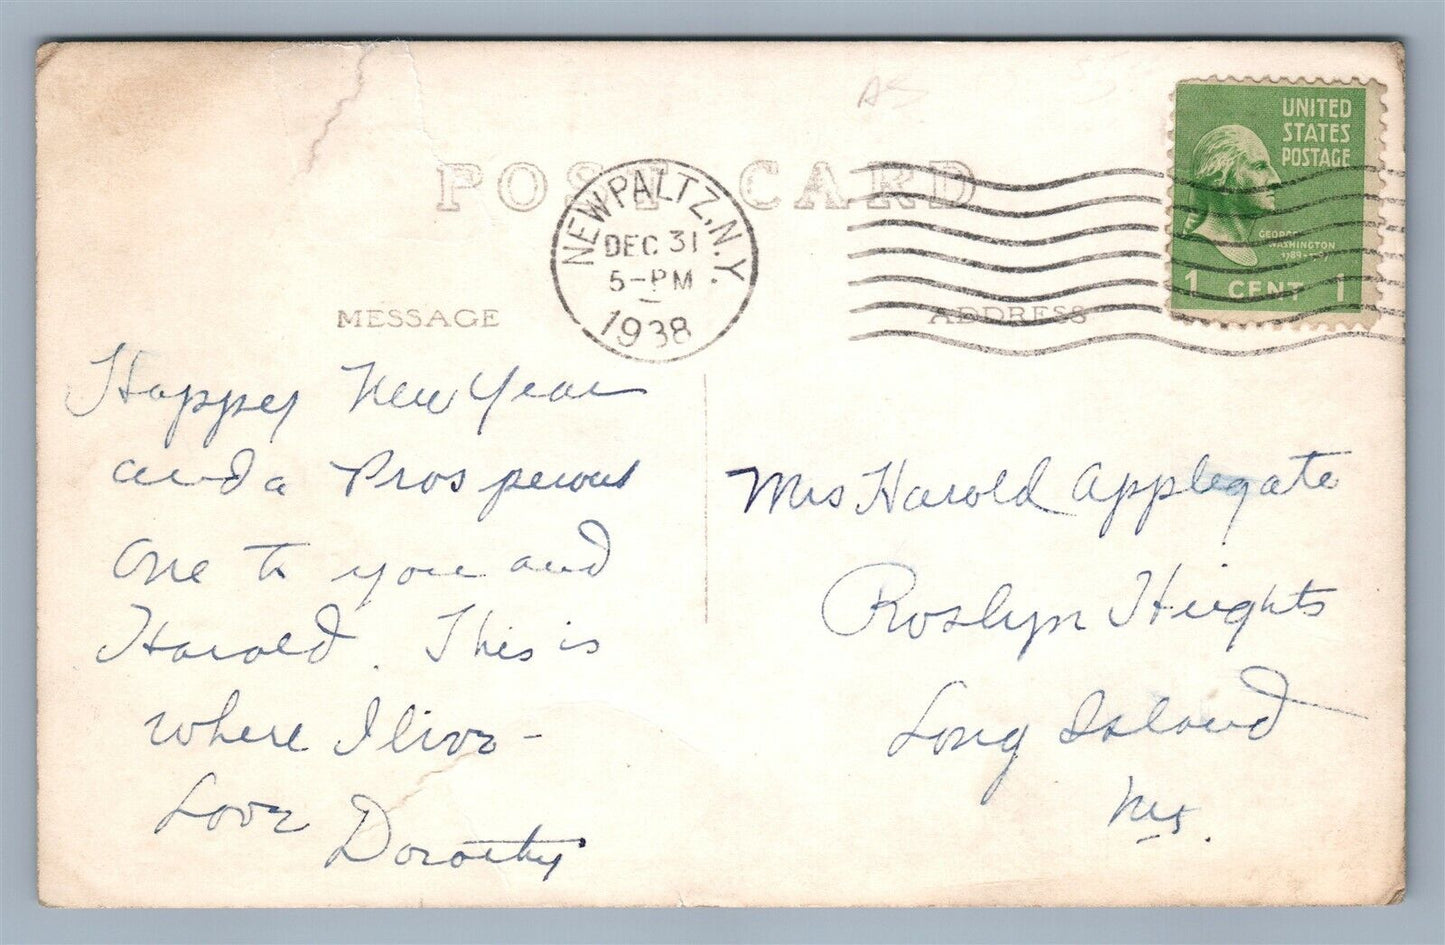 AS
POST CARD
NEW PALTZ, N.Y.
DEC 31
5-PM
1938
UNITED
STATES
POSTAGE
GEORGE
WASHINGTON
1 CENT 1
MESSAGE
ADDRESS
Happy New Year
and a Prosperous
one to you and
Harold. This is
where I live -
Love
Dorothy
Mrs Harold Applegate
Roslyn Heights
Long Island
NY.